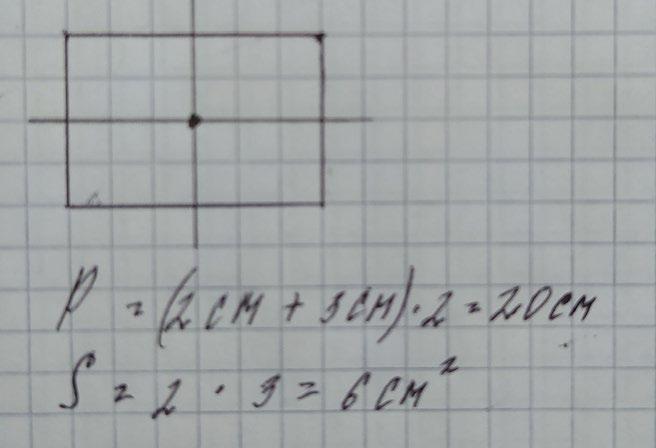 P = (2 см + 3 см) · 2 = 20 см
S = 2 · 3 = 6 см²